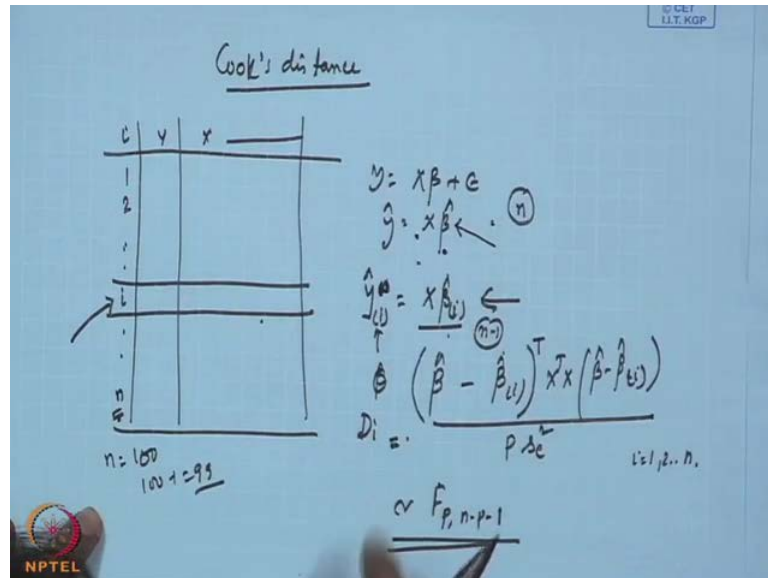 © CET
I.I.T. KGP
Cook's distance
i Y X
1
2
:
i
:
n
n=100
100-1=99
y = Xβ + ϵ
ŷ = Xβ̂ ← n
ŷ(i) = Xβ̂(i) ←
n-1
Di = (β̂ - β̂(i))ᵀ XᵀX (β̂ - β̂(i))
p se²
i=1,2..n.
~ F p, n-p-1
NPTEL